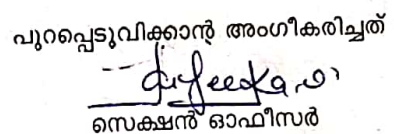 പുറപ്പെടുവിക്കാന്‍ അംഗീകരിച്ചത്
സെക്ഷന്‍ ഓഫീസര്‍